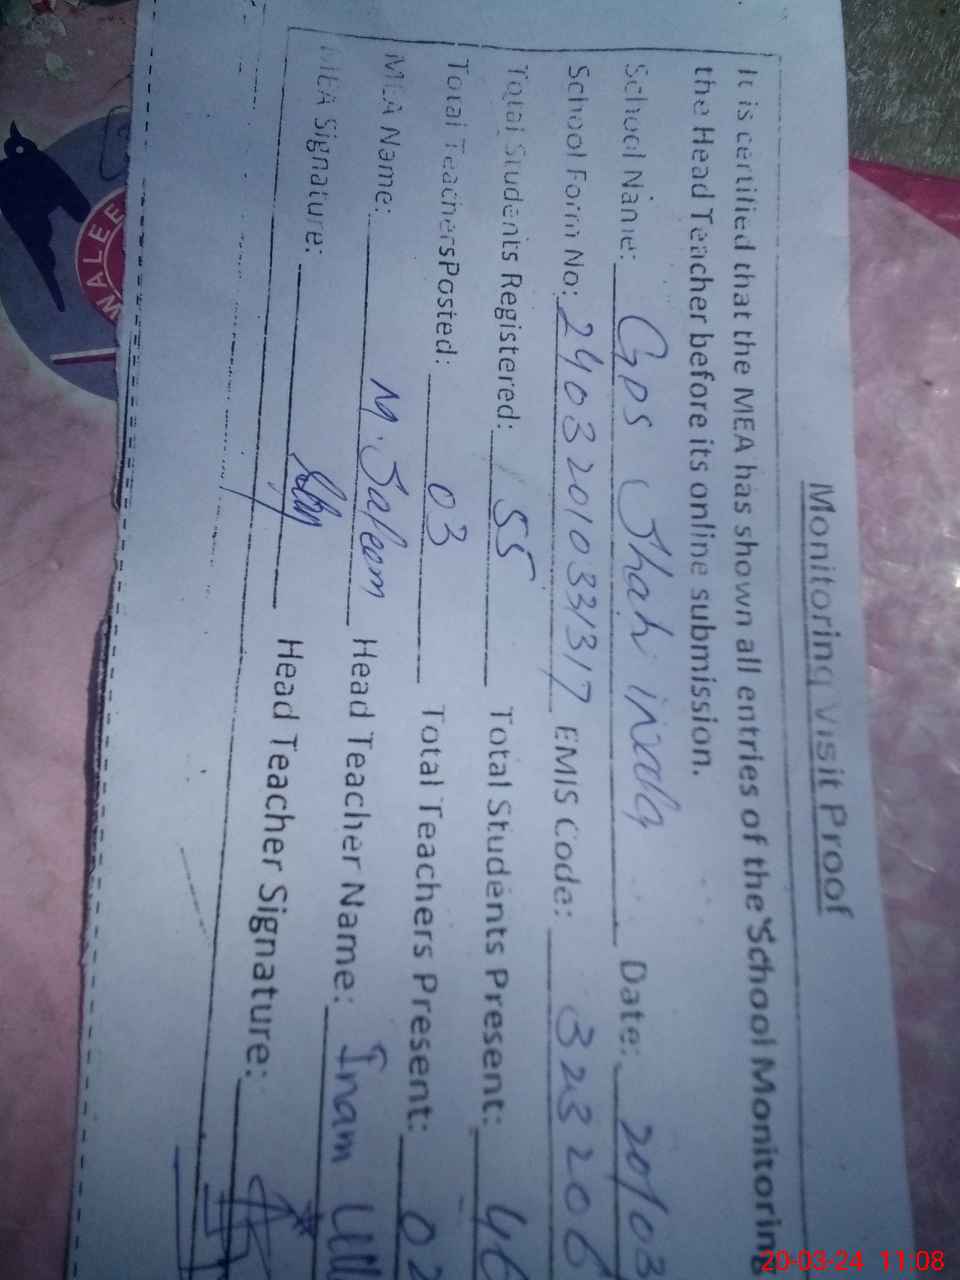 Monitoring Visit Proof
It is certified that the MEA has shown all entries of the School Monitoring
the Head Teacher before its online submission.
School Name: GPS Shah inwala Date: 20/03
School Form No: 2403201033137 EMIS Code: 323206
Total Students Registered: 55 Total Students Present: 46
Total Teachers Posted: 03 Total Teachers Present: 02
MEA Name: M. Saleem Head Teacher Name: Inam Ull
MEA Signature: Head Teacher Signature:
WALEE
20-03-24 11:08